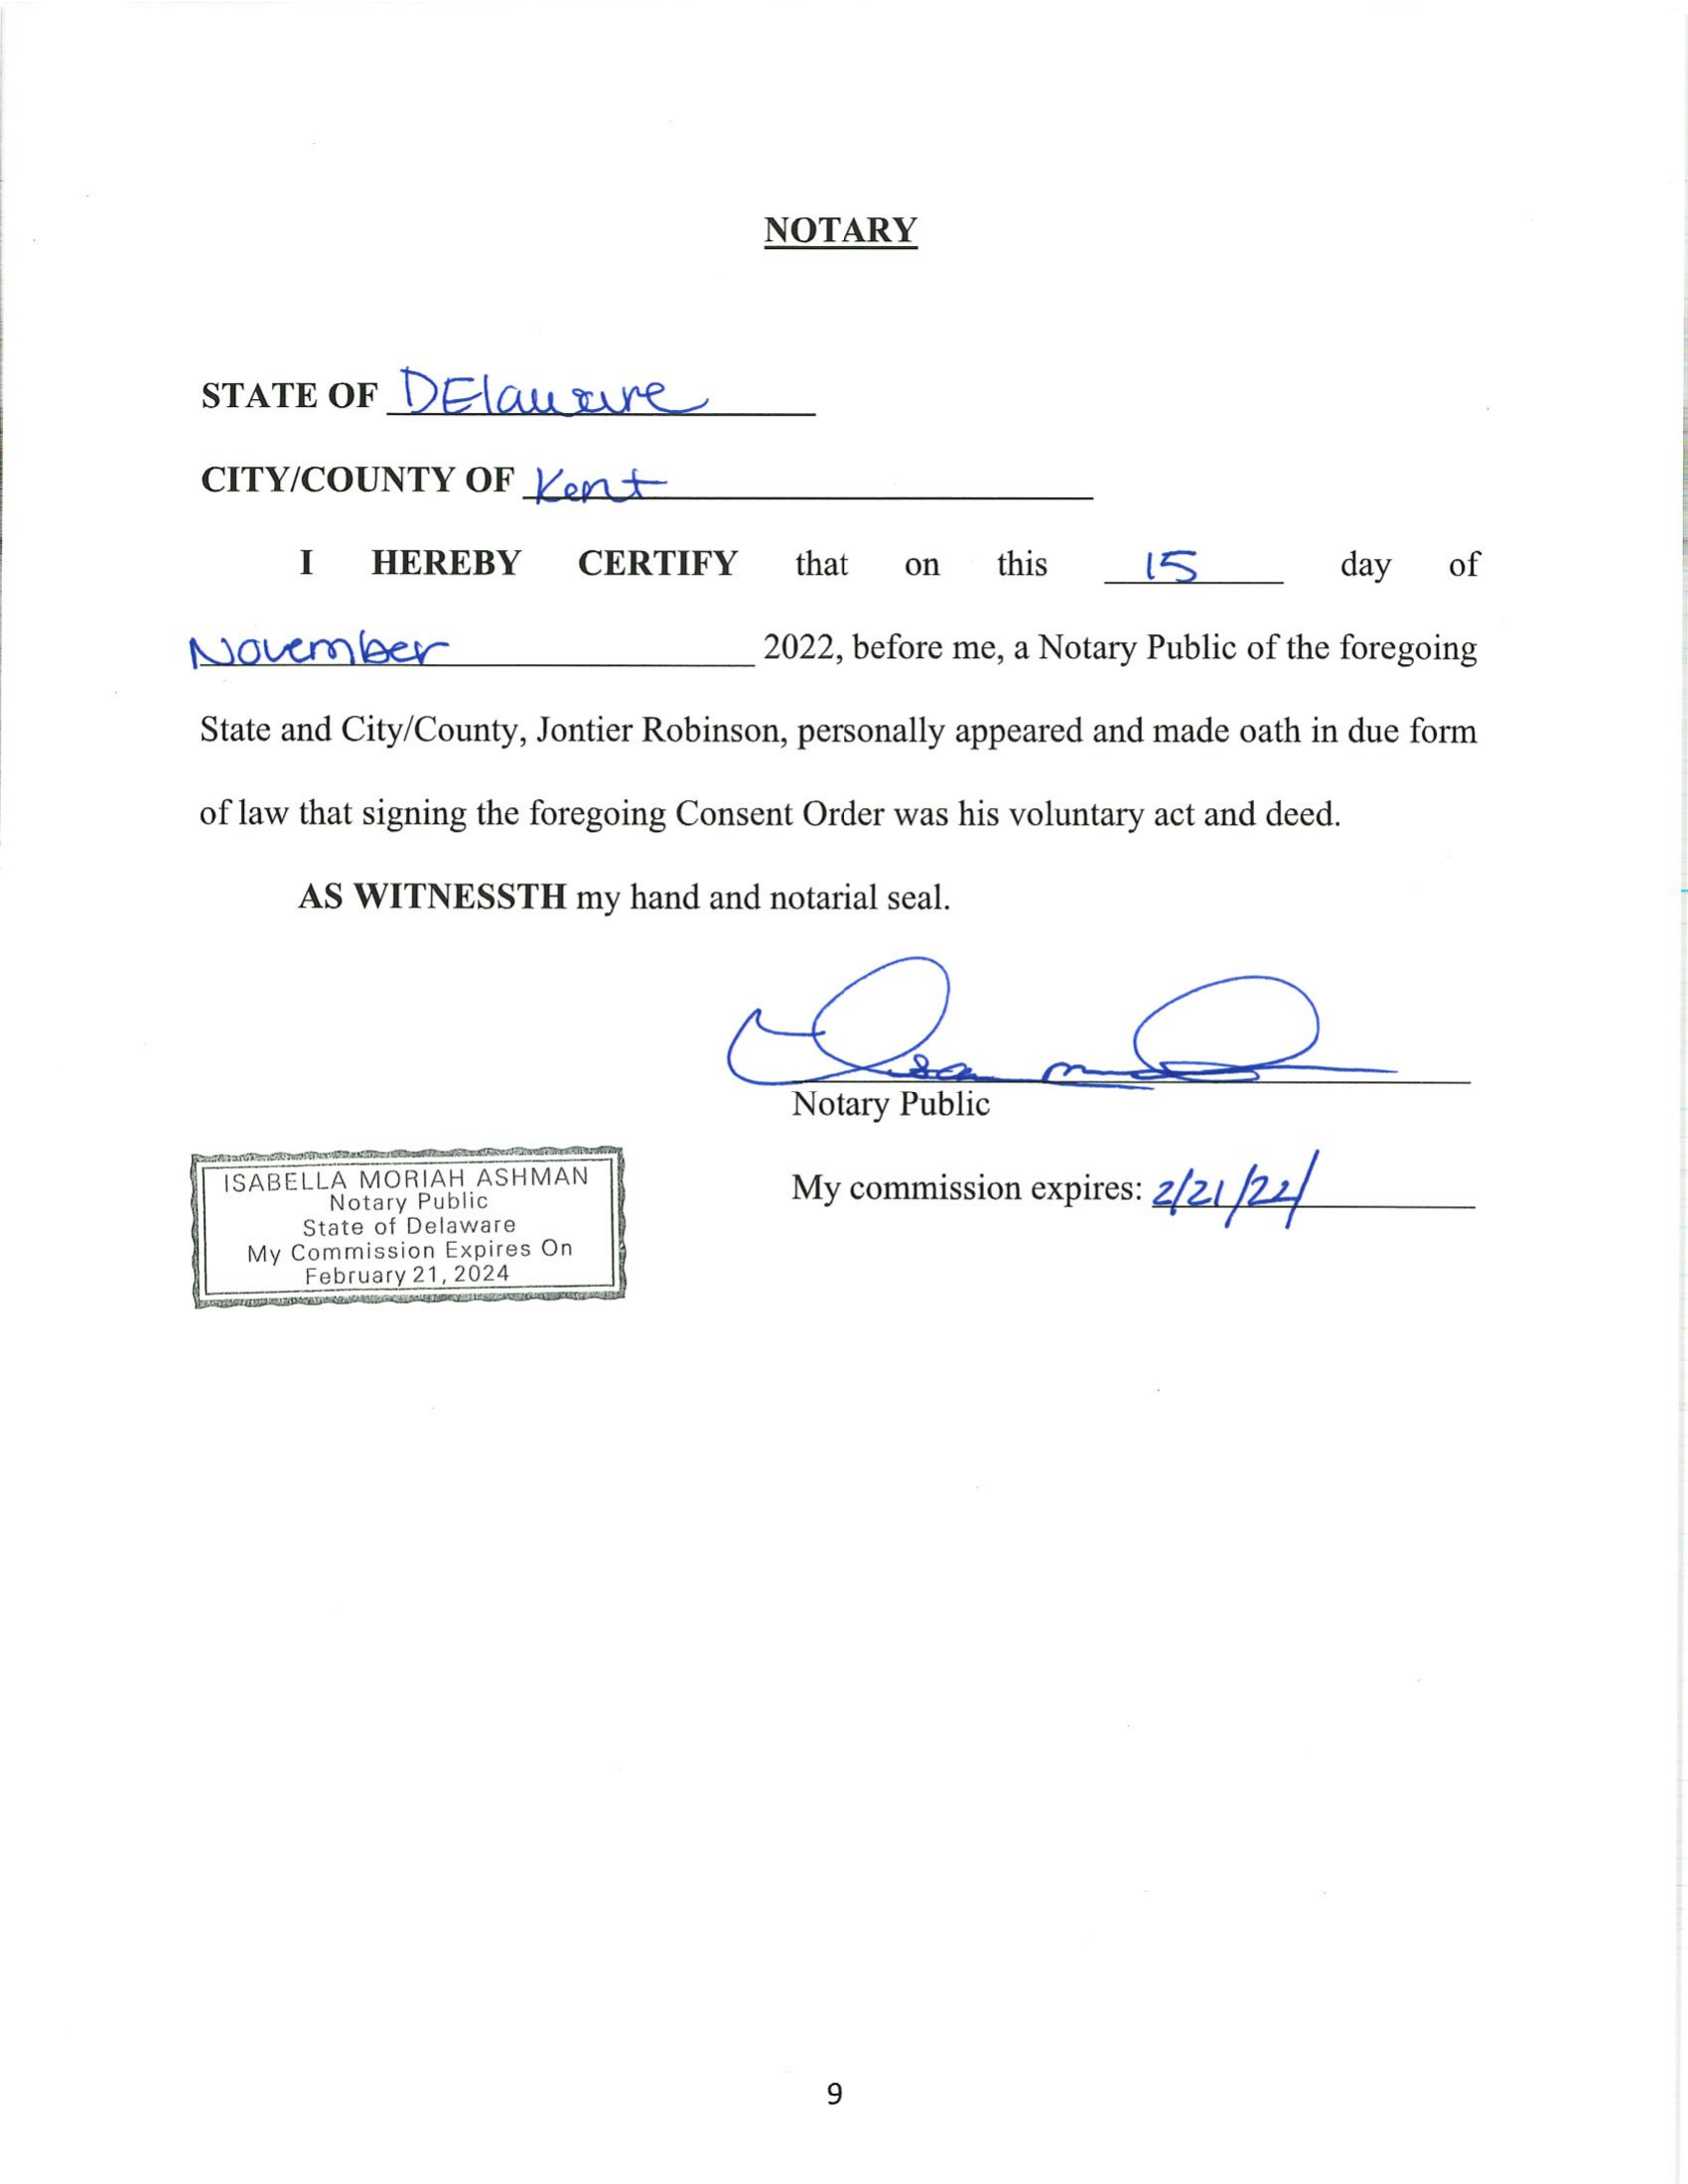 NOTARY
STATE OF DElaware
CITY/COUNTY OF Kent
I HEREBY CERTIFY that on this 15 day of
November 2022, before me, a Notary Public of the foregoing
State and City/County, Jontier Robinson, personally appeared and made oath in due form
of law that signing the foregoing Consent Order was his voluntary act and deed.
AS WITNESSTH my hand and notarial seal.
Notary Public
My commission expires: 2/21/24
ISABELLA MORIAH ASHMAN
Notary Public
State of Delaware
My Commission Expires On
February 21, 2024
9